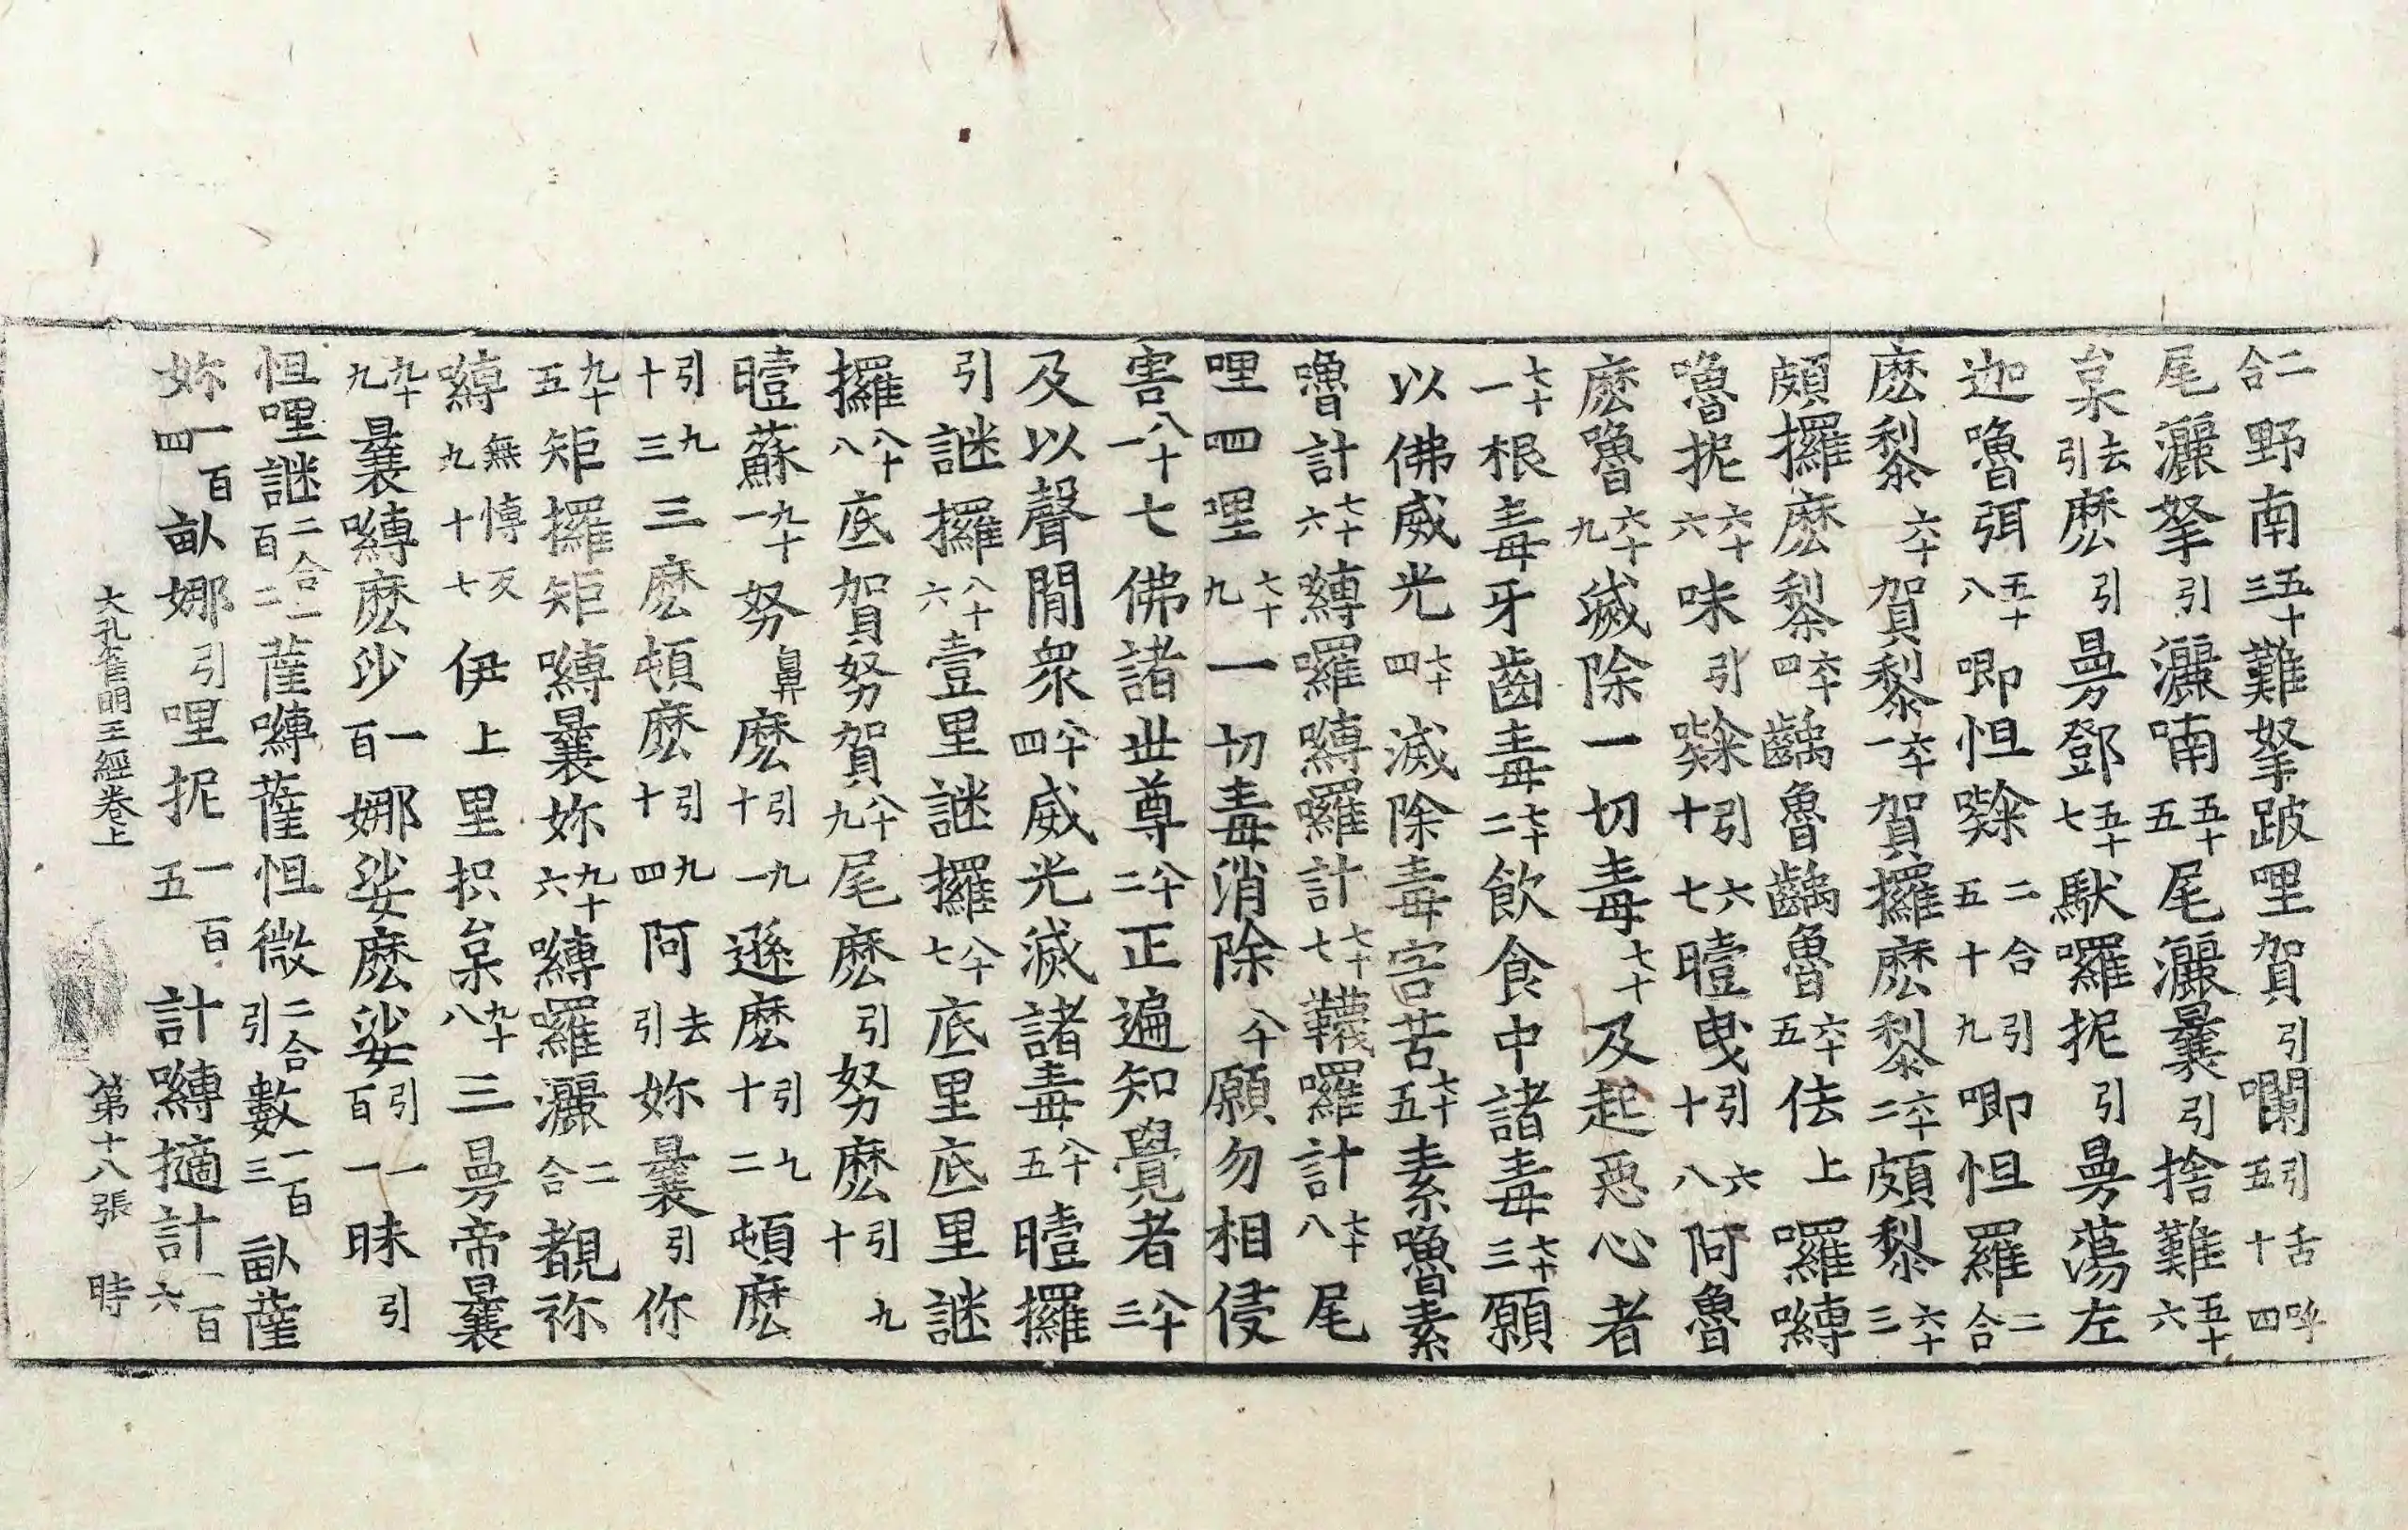 二合野南五十三難拏跛哩賀引囒引舌呼五十四
尾灑拏引灑喃五十五尾灑曩引捨難五十六
枲去引麽引曼鄧五十七馱囉抳引曼蕩左
迦嚕弭五十八唧怛㗚二合引五十九唧怛羅二合
麽黎六十賀黎六十一賀攞麽黎六十二頗黎六十三
頗攞麽黎六十四齲魯齲魯五十六佉上囉嚩
嚕抳六十六味引㗚引六十七曀曳引六十八阿魯
麽嚕六十九滅除一切毒七十及起惡心者
七十一根毒牙齒毒七十二飲食中諸毒七十三願
以佛威光七十四滅除毒害苦七十五素嚕素
嚕計七十六嚩囉嚩囉計七十七韈囉計七十八尾
哩呬哩七十九一切毒消除八十願勿相侵
害八十一七佛諸世尊八十二正遍知覺者八十三
及以聲聞衆八十四威光滅諸毒八十五曀攞
引謎攞八十六壹里謎攞八十七底里底里謎
攞八十八底賀努賀八十九尾麽引努麽引九
曀蘇九十一努鼻麽引九十一遜麽引九十二頓麽
引九十三三麽頓麽引九十四阿去引妳曩引你
九十五矩攞矩嚩曩妳九十六嚩囉灑二合覩祢
嚩無博反九十七伊上里抧枲九十八三曼帝曩
九十九曩嚩麽沙一百娜娑麽娑引一百一昧引
怛哩謎二合一百二薩嚩薩怛微二合引數一百三畝薩
妳一百四畝娜引哩抳一百五計嚩擿計一百六
大孔雀明王經卷上 第十八張 時